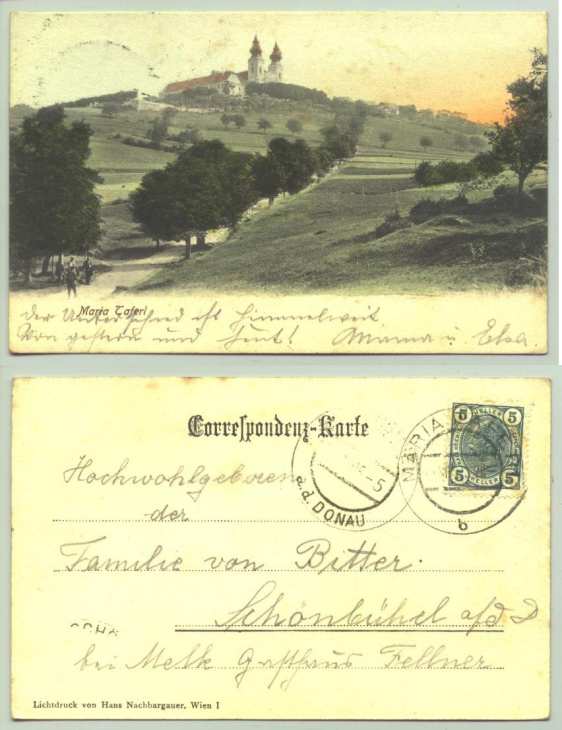 Maria Taferl
der Unterschied ist himmelweit
Von gestern und heut! Mama u. Elsa.
Correspondenz-Karte
5 5
HELLER
5 5
MARIA
b
a.d. DONAU
5
Hochwohlgeboren
der
Familie von Bitter.
Schönbühel a/d D
bei Melk Gasthaus Fellner
Lichtdruck von Hans Nachbargauer, Wien I